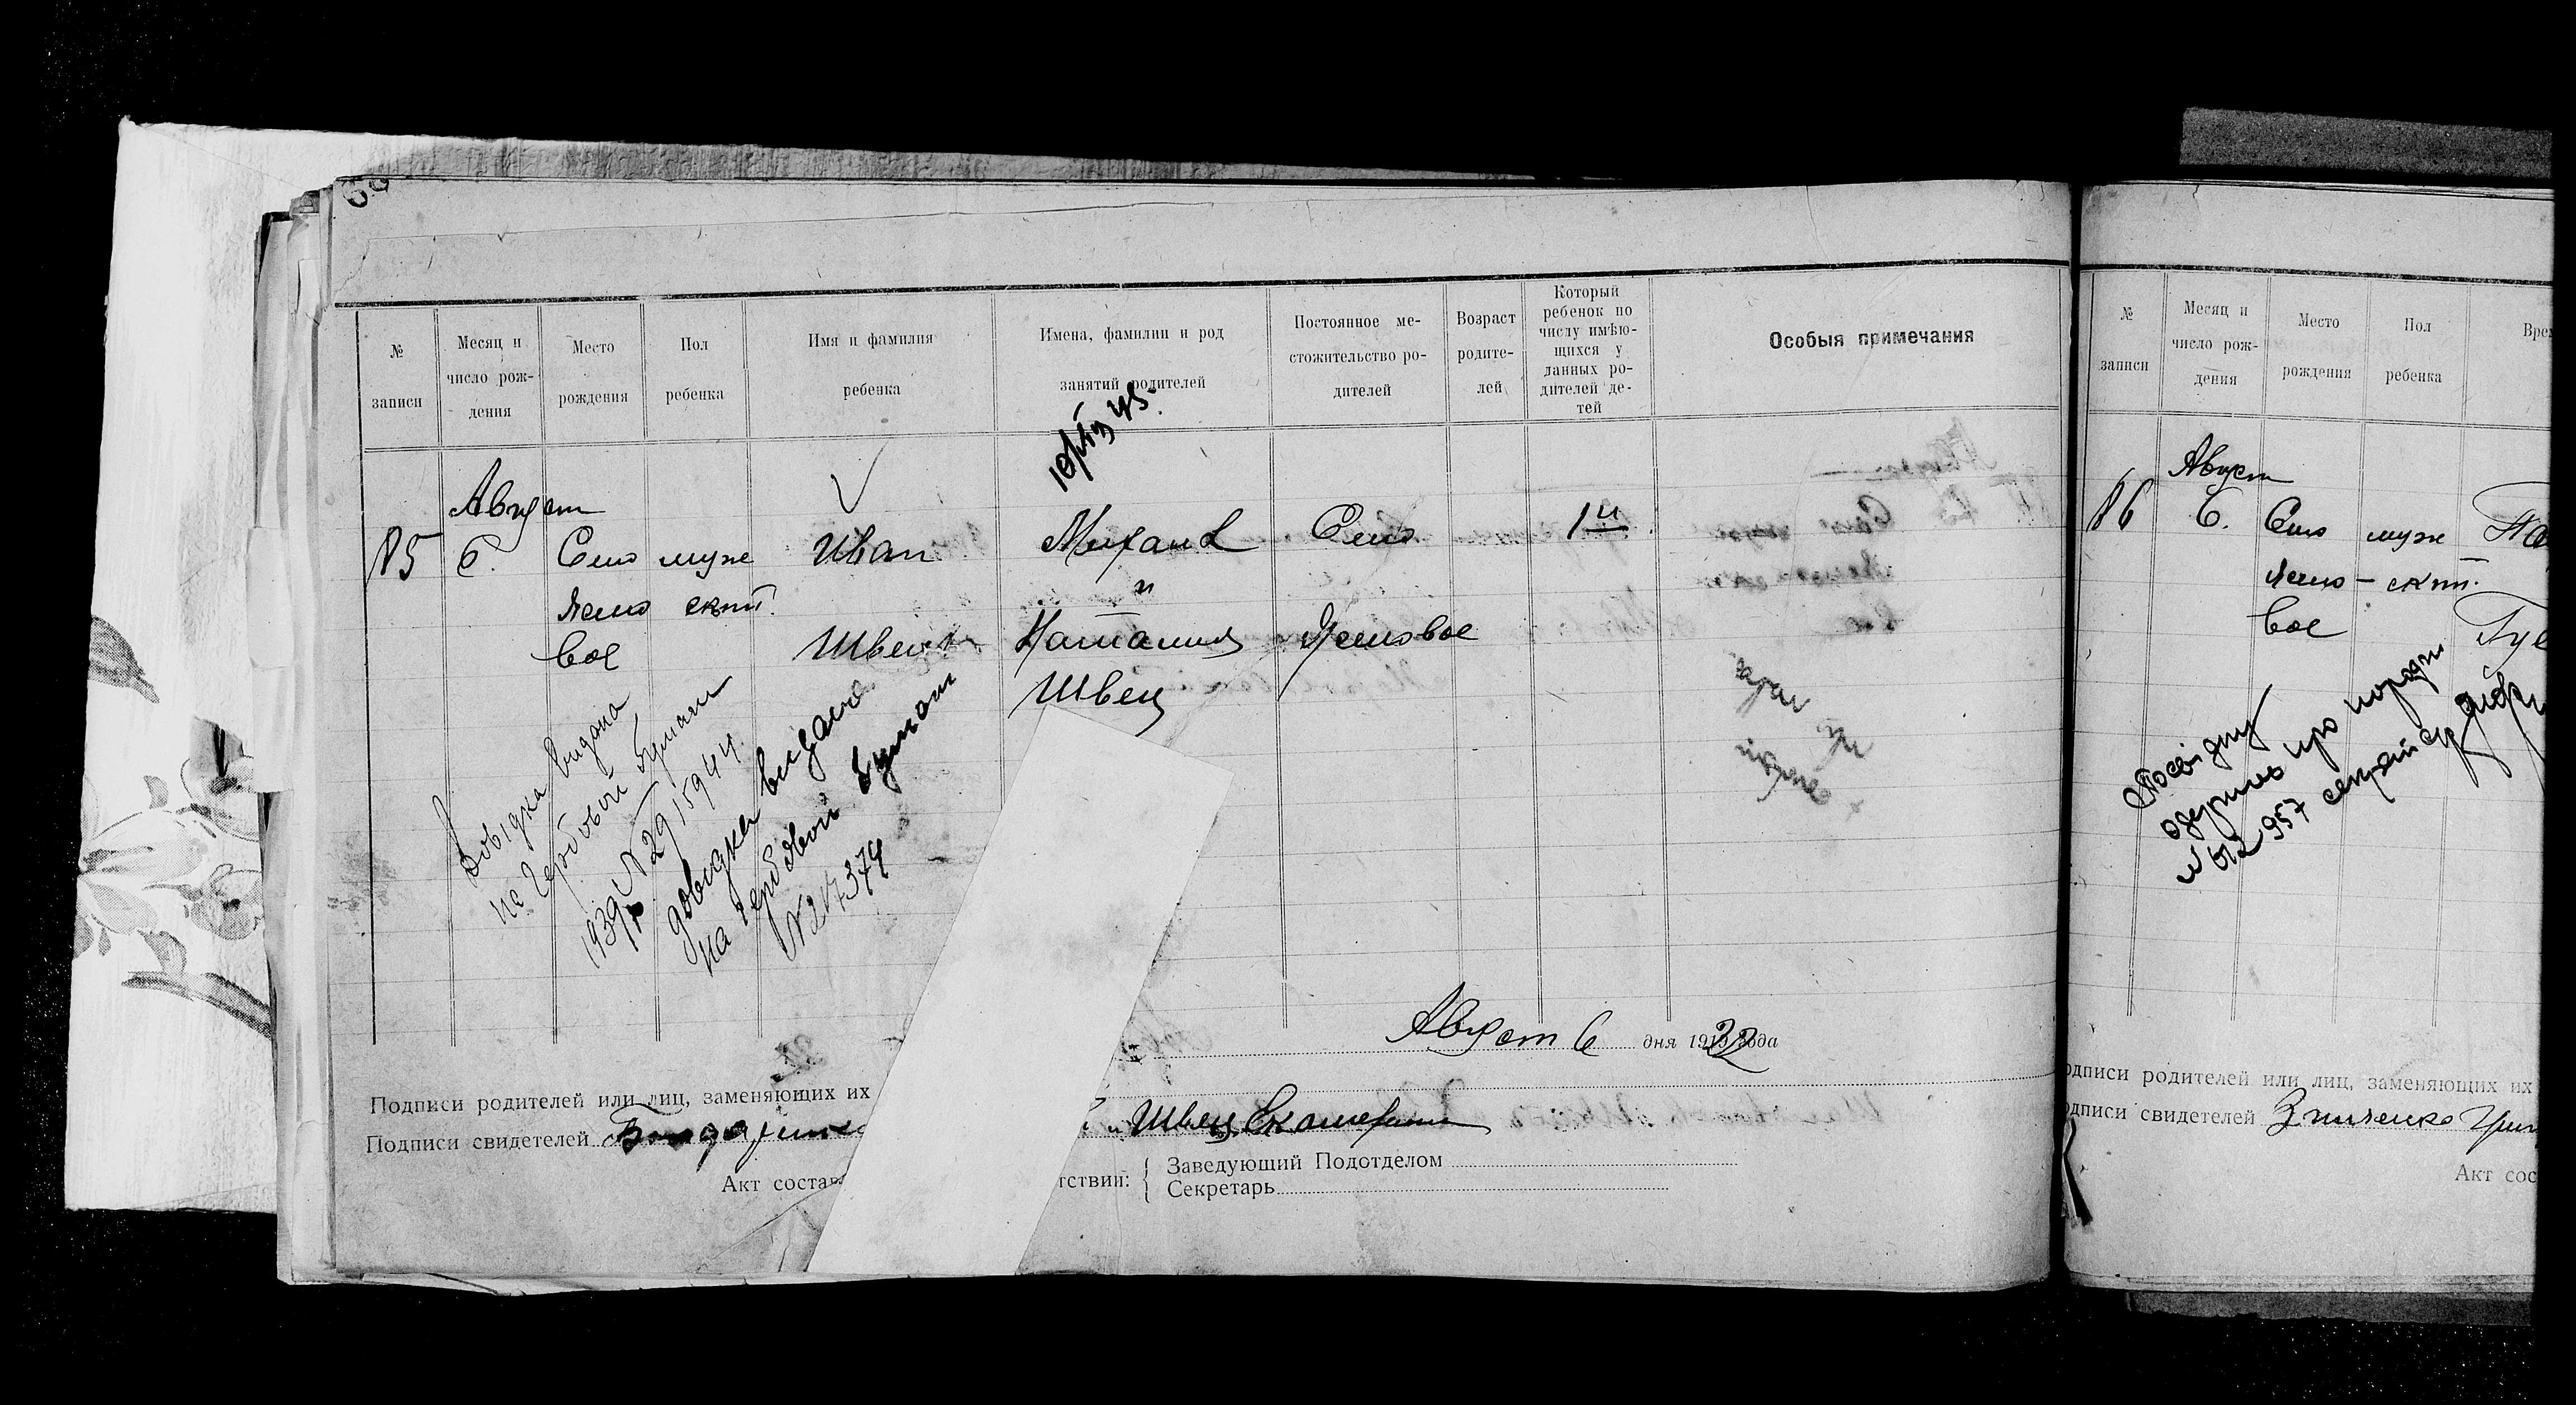 № записи
Месяц и число рождения
Место рождения
Пол ребенка
Имя и фамилия ребенка
Имена, фамилии и род занятий родителей
Постоянное местожительство родителей
Возраст родителей
Который ребенок по числу имѣющихся у данных родителей детей
Особыя примечания
85
Август
6.
Село
Ясено
вое
муже
ский
Иван
Швец
Михаил
и
Наталия
Швец
Село
Ясеновое
1й
Довідка видана
на гербовой бумаги
1939 N 2915944
довидка видано
на гербовой бумаги
N 217374
Август 6 дня 1922 года
Подписи родителей или лиц, заменяющих их
Подписи свидетелей
и Швец Екатерина
Акт состав
тствии:
Заведующий Подотделом
Секретарь
№ записи
Месяц и число рождения
Место рождения
Пол ребенка
Врем
86
Август
6.
Село
Ясено-
вое
муже
ский
одписи родителей или лиц, заменяющих их
одписи свидетелей
Акт сос